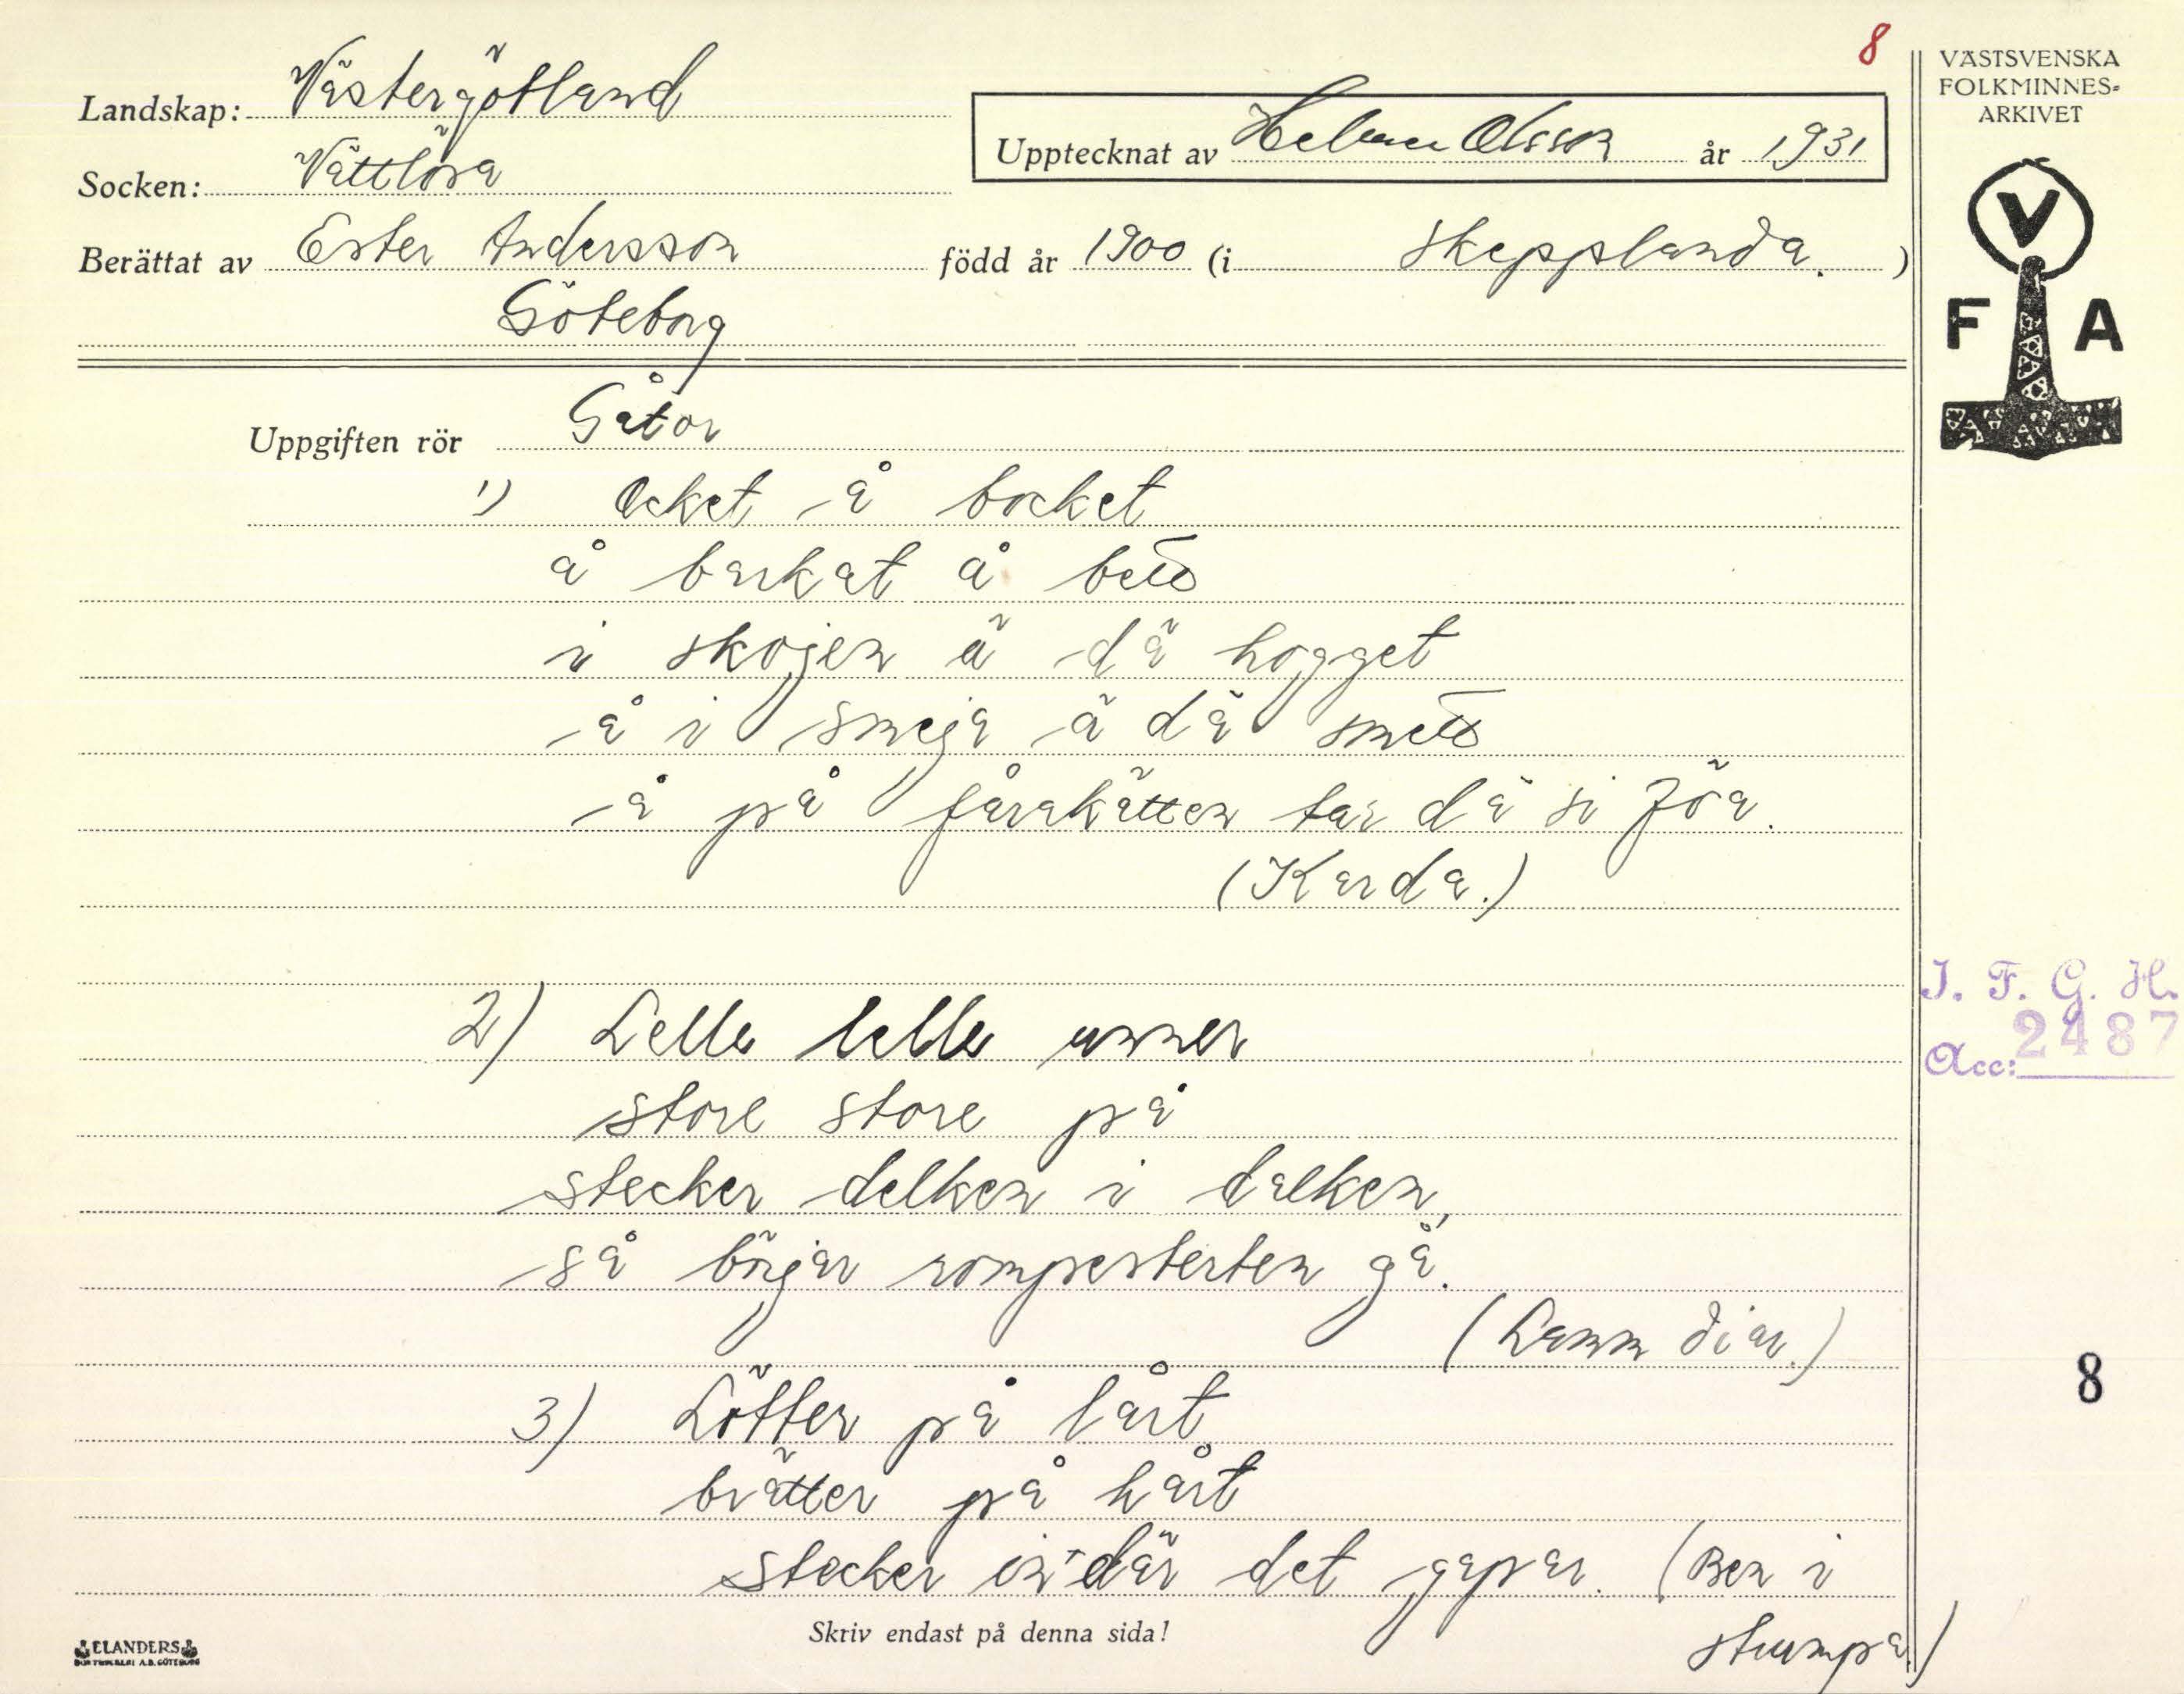 8
VÄSTSVENSKA
FOLKMINNES=
ARKIVET
Landskap: Västergötland
Upptecknat av Helmer Olsson år 1931
Socken: Vättlösa
Berättat av Ester Andersson född år 1900 (i Skepplanda.)
Göteborg
V
F A
Uppgiften rör Gåtor
1) Ocket å bocket
å barkat å
i skojen ä dä hogget
å i smeja ä dä
å på fårakätten tar dä si föa.
(Karda.)
2) Lelle lelle unner
store store på
stecker delken i dalken,
så börjar rompesterten gå.
(Lamm diar.)
3) Lötter på lårt
brätter på hårt
stecker in där det gapar. (Ben i
strumpa)
I. F. G. H.
Acc: 2487
8
Skriv endast på denna sida!
ELANDERS
BOKTRYCKERI A.B. GÖTEBORG